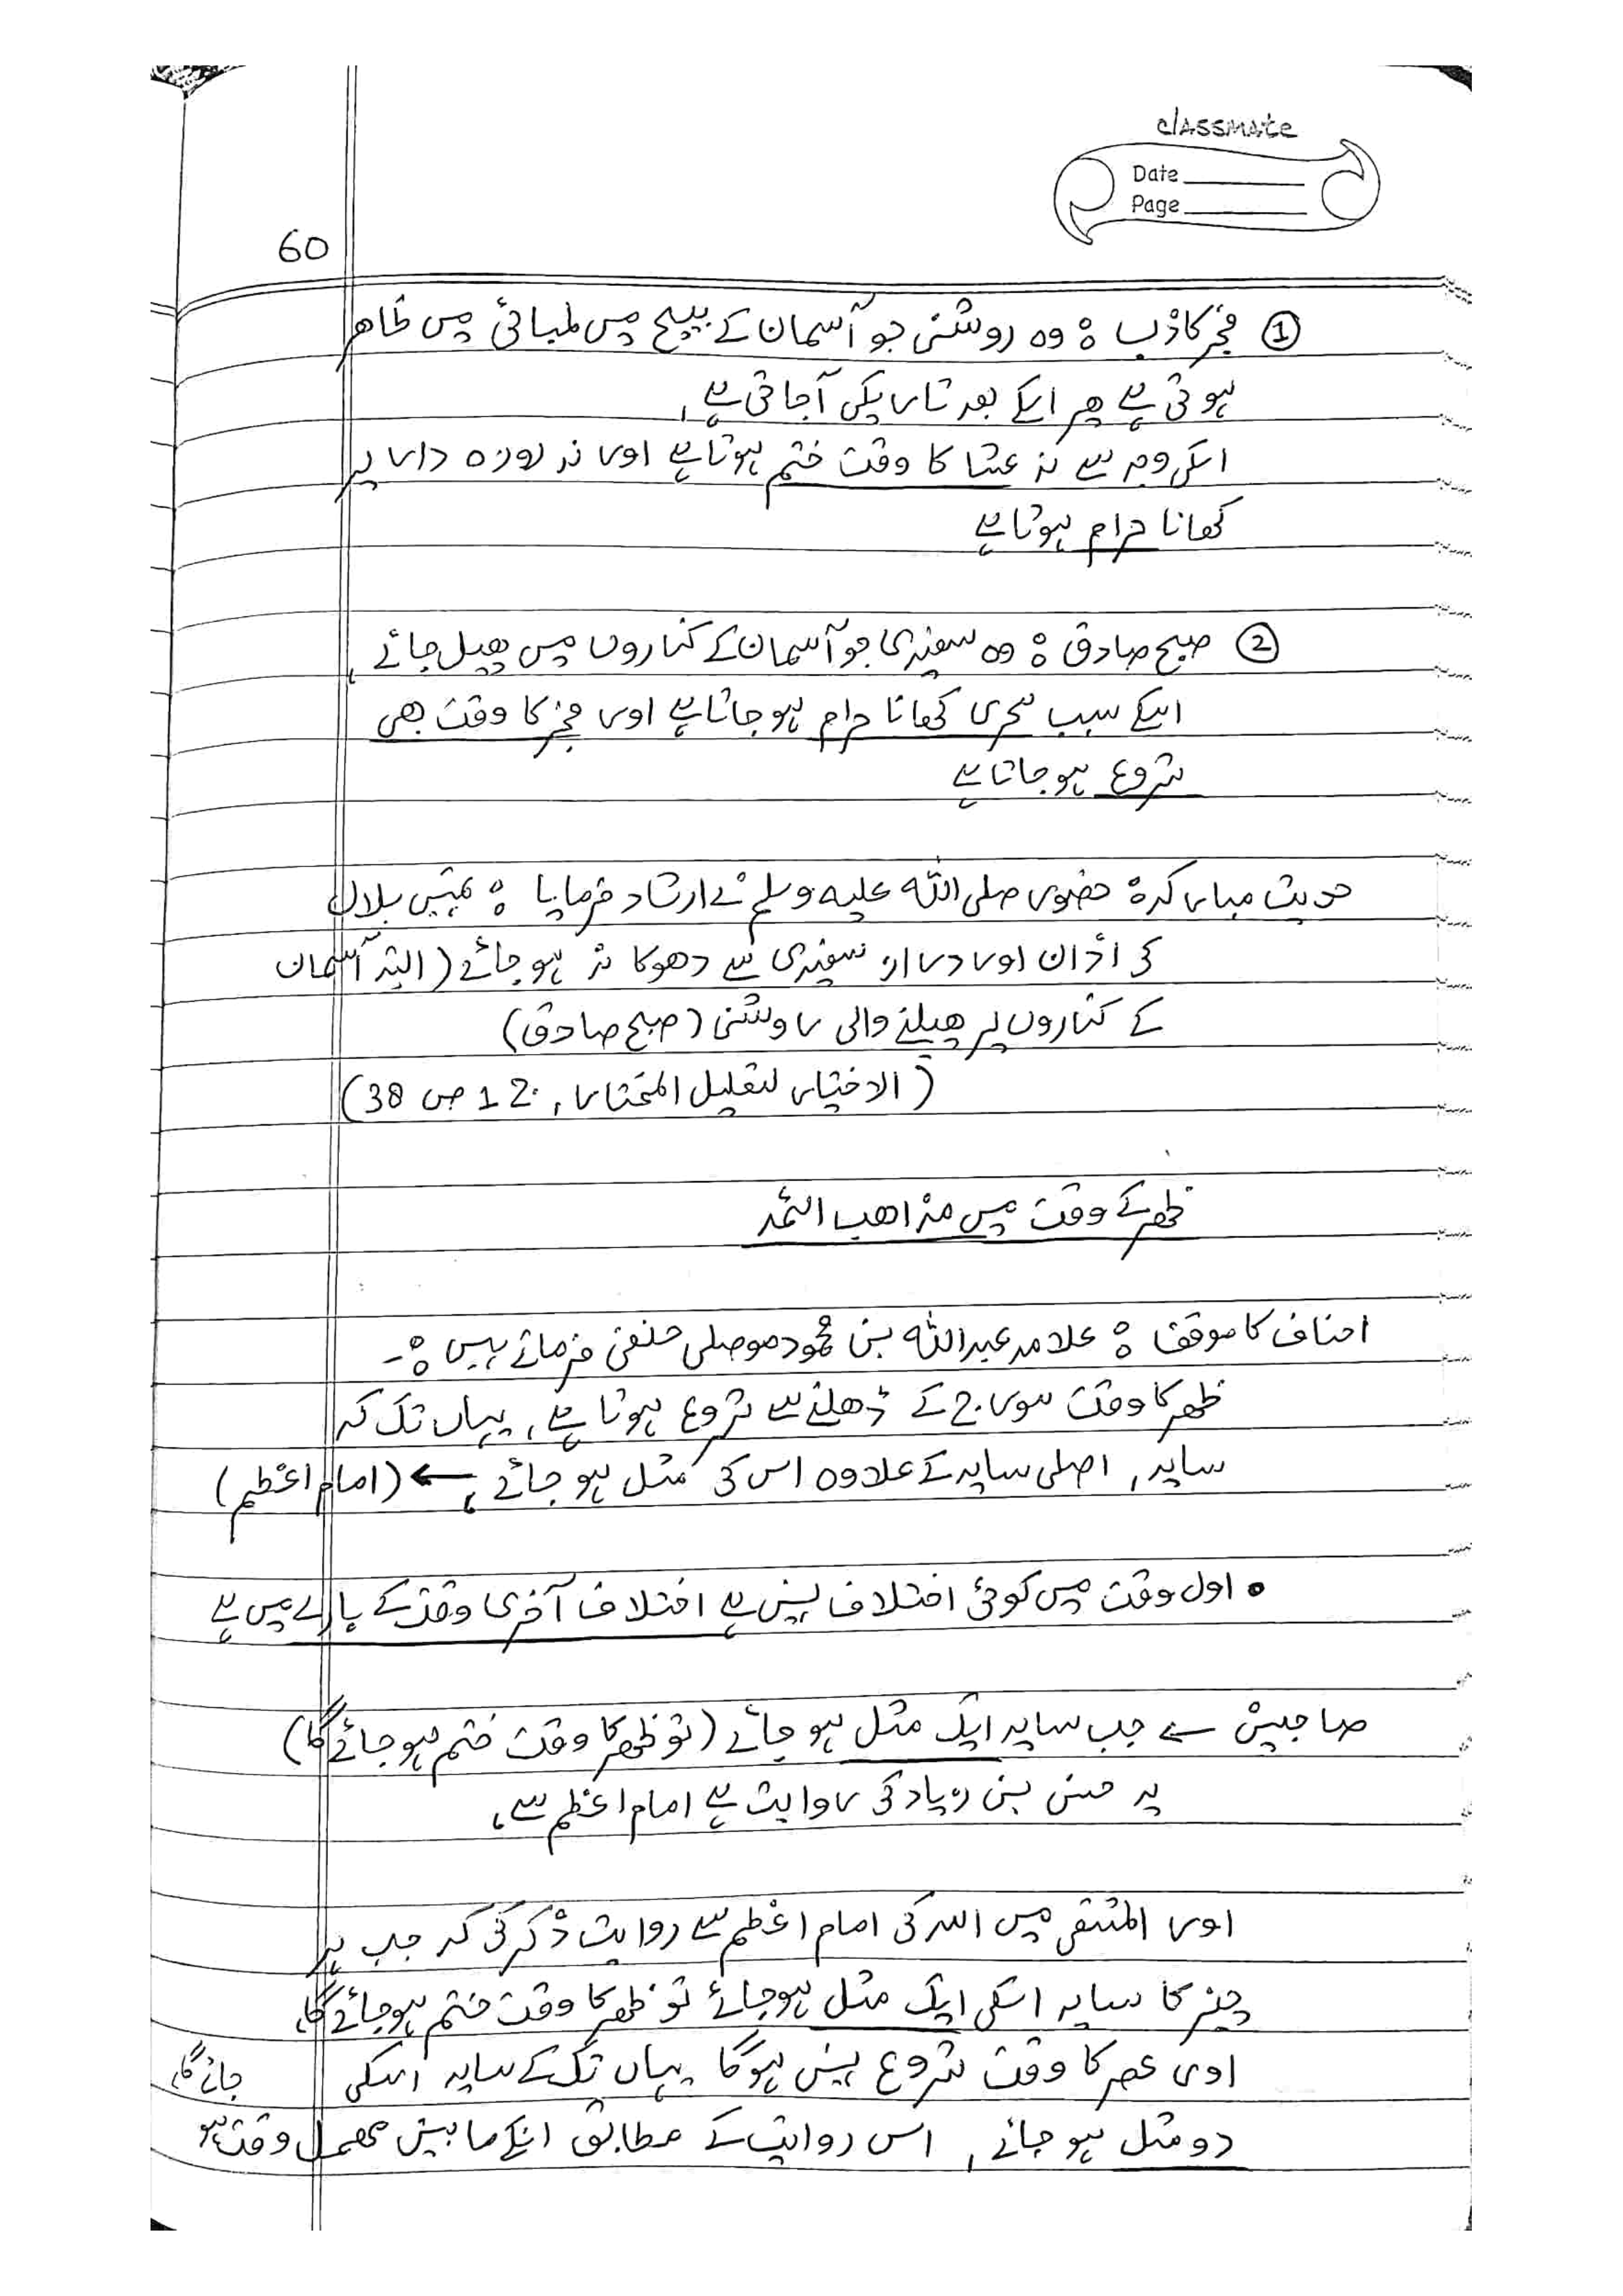 classmate
Date
Page
60
① فجر کاذب : وہ روشنی جو آسمان کے بیچ میں لمبائی میں ظاہر
ہوتی ہے پھر اسکے بعد تاریکی آجاتی ہے،
اسکی وجہ سے نہ عشا کا وقت ختم ہوتا ہے اور نہ روزہ دار پر
کھانا حرام ہوتا ہے
② صبح صادق : وہ سفیدی جو آسمان کے کناروں میں پھیل جائے،
اسکے سبب سحری کھانا حرام ہو جاتا ہے اور فجر کا وقت بھی
شروع ہو جاتا ہے
حدیث مبارکہ : حضور صلی اللہ علیہ وسلم نے ارشاد فرمایا : تمہیں بلال
کی اذان اور دراز سفیدی سے دھوکا نہ ہو جائے (البتہ آسمان
کے کناروں پر پھیلنے والی روشنی (صبح صادق)
(الاختیار لتعلیل المختار، ج 1 ص 38)
ظہر کے وقت میں مذاھب ائمہ
احناف کا موقف : علامہ عبداللہ بن محمود موصلی حنفی فرماتے ہیں :-
ظہر کا وقت سورج کے ڈھلنے سے شروع ہوتا ہے، یہاں تک کہ
سایہ، اصلی سایہ کے علاوہ اس کی مثل ہو جائے، ← (امام اعظم)
• اول وقت میں کوئی اختلاف نہیں ہے اختلاف آخری وقت کے بارے میں ہے
صاحبین سے جب سایہ ایک مثل ہو جائے (تو ظہر کا وقت ختم ہو جائے گا)
یہ حسن بن زیاد کی روایت ہے امام اعظم سے،
اور المنتقی میں اسد کی امام اعظم سے روایت ذکر کی کہ جب ہر
چیز کا سایہ اسکی ایک مثل ہو جائے تو ظہر کا وقت ختم ہو جائے گا،
اور عصر کا وقت شروع نہیں ہوگا یہاں تک کے سایہ اسکی
دو مثل ہو جائے، اس روایت کے مطابق انکے مابین مھمل وقت ہو
جائے گا،